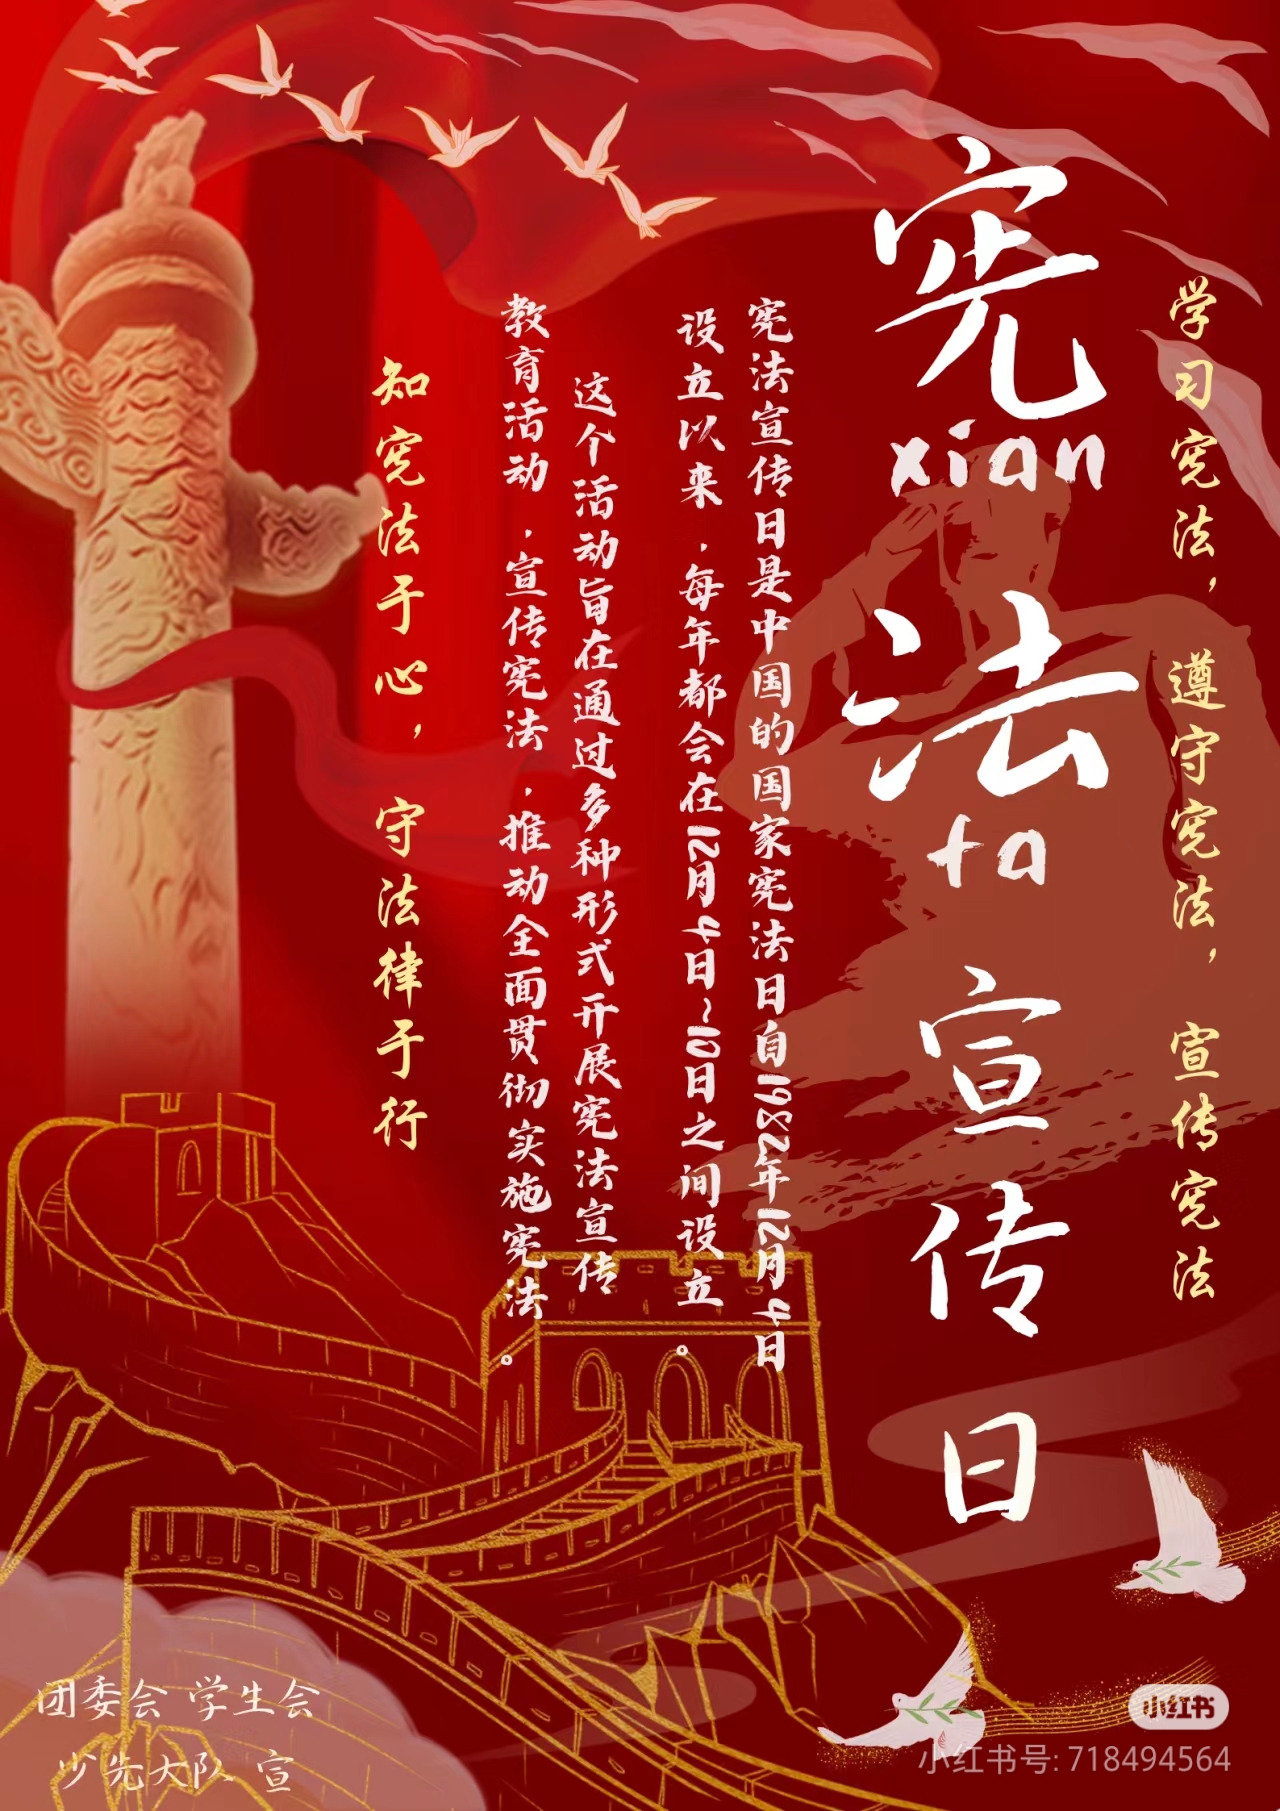 学习宪法，遵守宪法，宣传宪法
宪
xian
法
fa
宣传日
宪法宣传日是中国的国家宪法日自1982年12月4日
设立以来，每年都会在12月4日~10日之间设立。
这个活动旨在通过多种形式开展宪法宣传
教育活动，宣传宪法，推动全面贯彻实施宪法。
知宪法于心，守法律于行
团委会 学生会
少先大队 宣
小红书
小红书号: 718494564